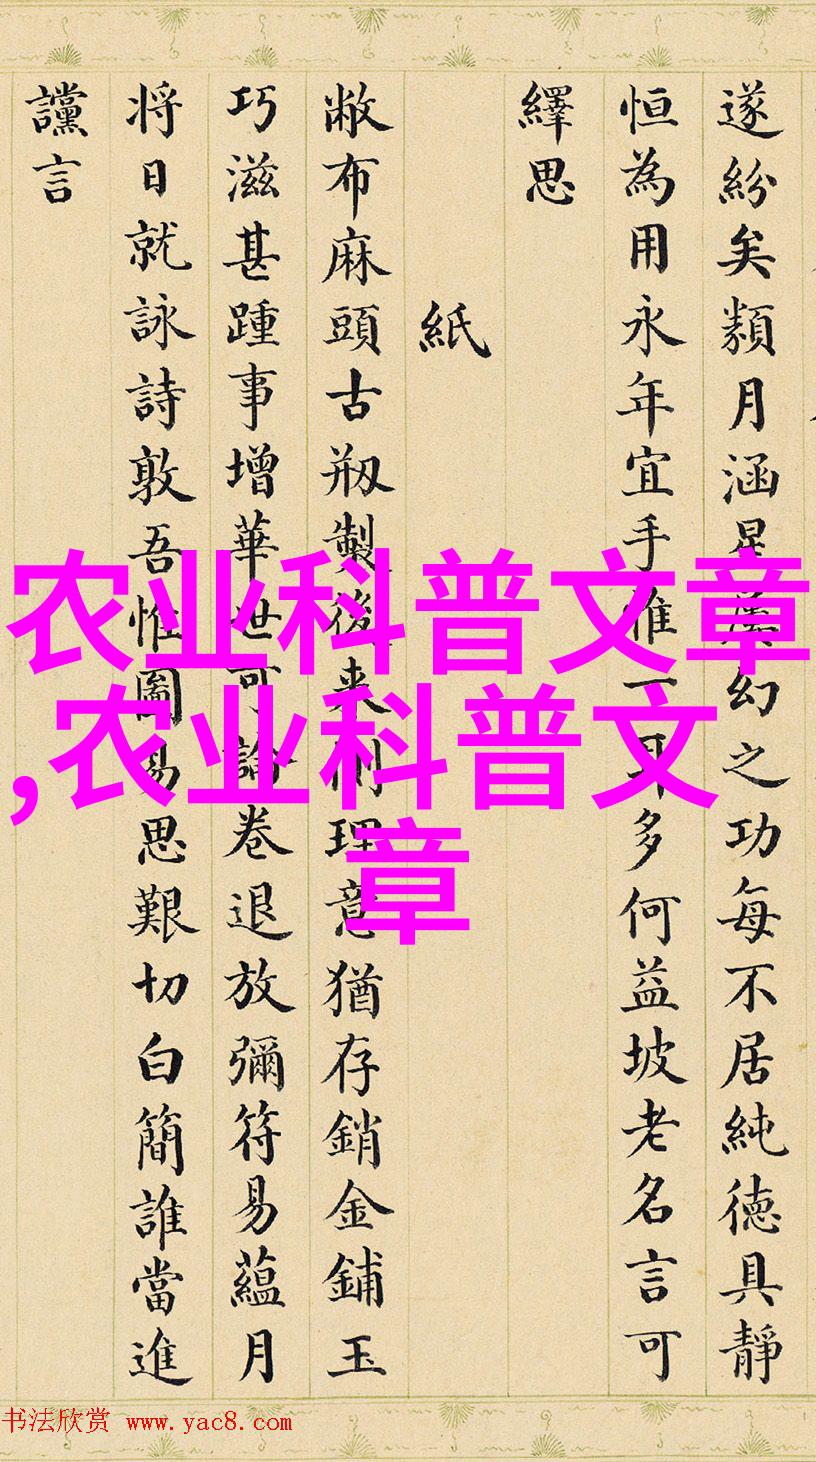 遂紛矣類月涵星漢幻之功每不居純德具靜
恒為用永年宜手惟一耳多何益坡老名言可
繹思
紙
敝布麻頭古剏製後來側理意猶存銷金鋪玉
巧滋甚踵事增華世可論卷退放彌符易蘊月
将日就詠詩敦吾惟圖易思艱切白簡誰當進
讜言
农业科普文章
,农业科普文
章
书法欣赏 www.yac8.com